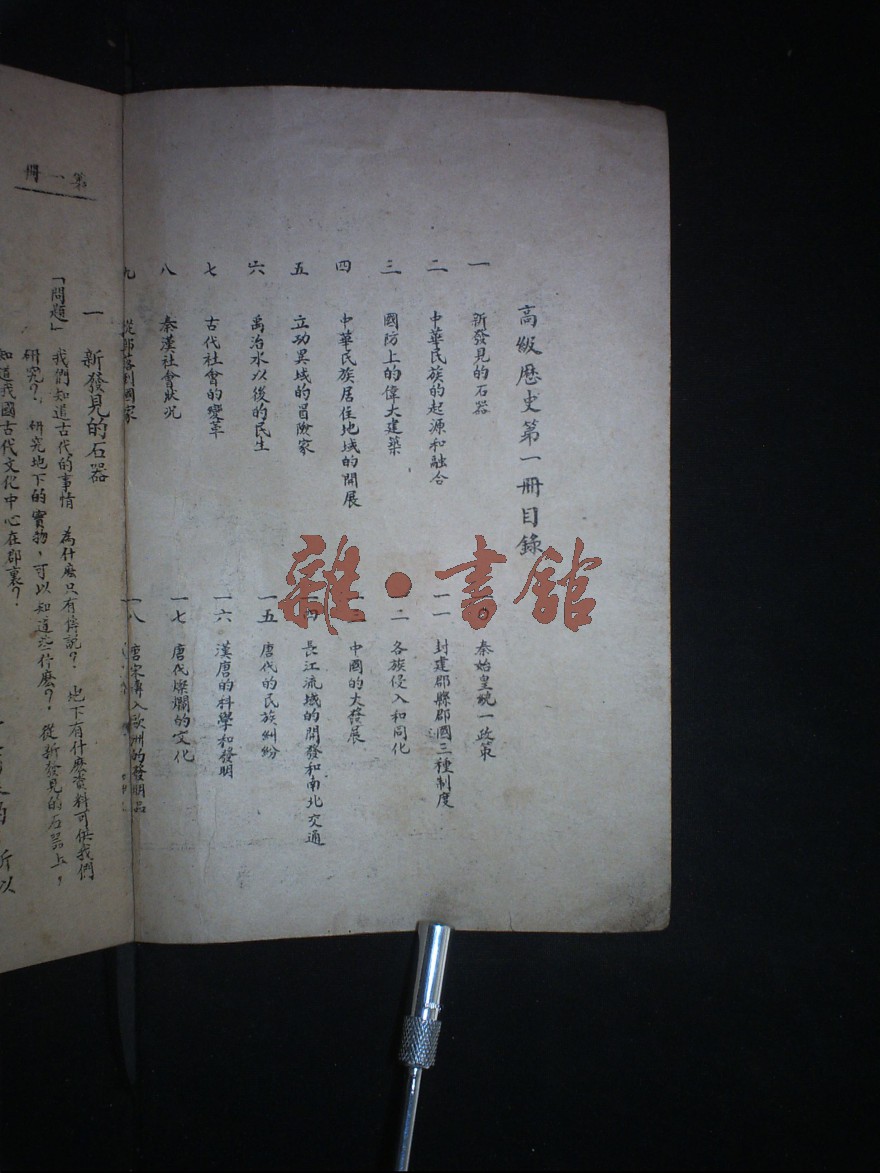 高級歷史第一冊目錄
一 新發見的石器
二 中華民族的起源和融合
三 國防上的偉大建築
四 中華民族居住地域的開展
五 立功異域的冒險家
六 禹治水以後的民生
七 古代社會的變革
八 秦漢社會狀況
九 從部落到國家
秦始皇統一政策
一一 封建郡縣郡國三種制度
二 各族侵入和同化
一三 中國的大發展
一四 長江流域的開發和南北交通
一五 唐代的民族糾紛
一六 漢唐的科學和發明
一七 唐代燦爛的文化
一八 唐宋傳入歐洲的發明品
雜·書館
第一冊
一 新發見的石器
「問題」 我們知道古代的事情 為什麼只有傳說? 地下有什麼資料可供我們
研究? 研究地下的實物,可以知道些什麼? 從新發見的石器上,
知道我國古代文化中心在那裏?
所以